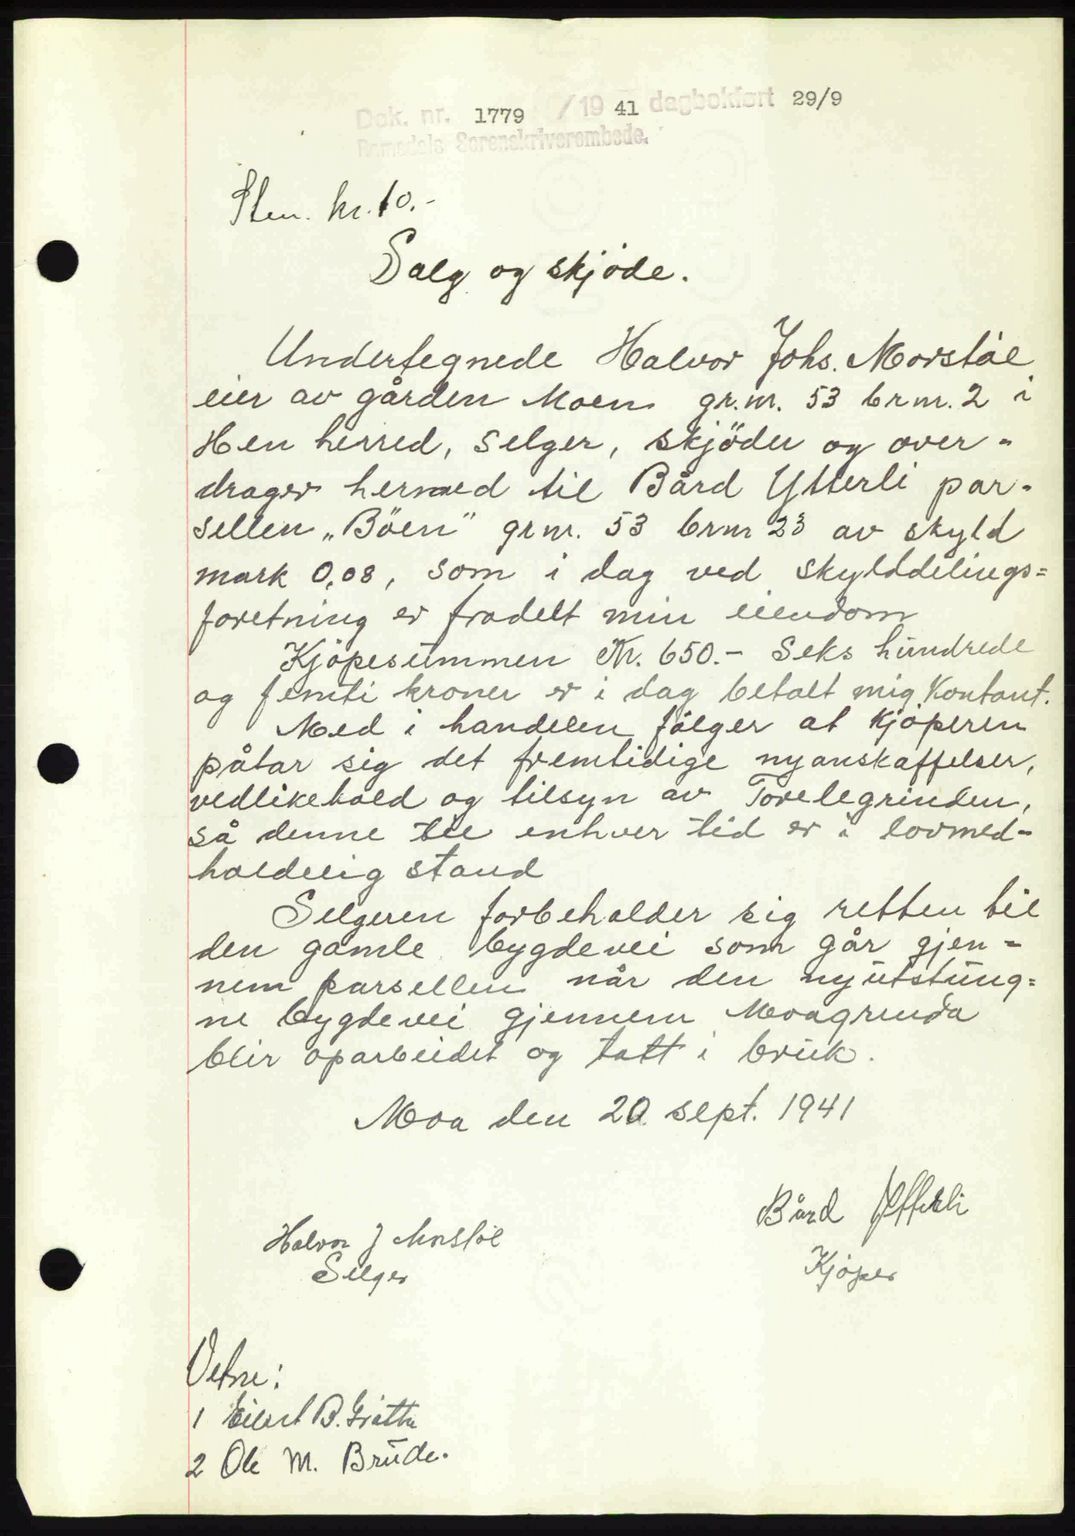 Dok. nr. 1779 /19 41 dagbokført 29/9
Romsdals Sorenskriverembede.
Stem. kr. 10.-
Salg og skjøde.
Undertegnede Halvor Johs. Morstøl
eier av gården Moen gr.nr. 53 br nr. 2 i
Hen herred, selger, skjöder og over-
drager hermed til Bård Ytterli par-
sellen „Böen" gr nr. 53 br nr 23 av skyld
mark 0,08, som i dag ved skylddelings=
foretning er fradelt min eiendom
Kjöpesummen Kr. 650.- Seks hundrede
og femti kroner er i dag betalt mig kontant.
Med i handelen fölger at kjöperen
påtar sig det fremtidige nyanskaffelser,
vedlikehold og tilsyn av Torelegrinden,
så denne til enhver tid er i lovmed-
holdelig stand
Selgeren forbeholder sig retten til
den gamle bygdevei som går gjen=
nem parsellen når den nyutstung=
ne bygdevei gjennem Moagrenda
blir oparbeidet og tatt i bruk.
Moa den 20 sept. 1941
Bård Ytterli
Kjöper
Halvor J Morstøl
Selger
Vetne:
1 Eilert B.
2 Ole M. Brude.